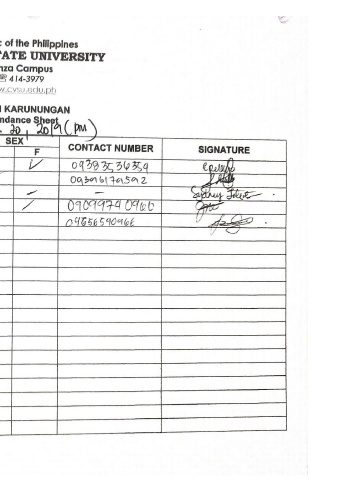 c of the Philippines
TATE UNIVERSITY
nza Campus
414-3979
w.cvsu.edu.ph
I KARUNUNGAN
ndance Sheet
. 20, 2019 (PM)
SEX
F CONTACT NUMBER SIGNATURE
✓ 09393536359
09396179592
- -
/ 09099740966
09656590966